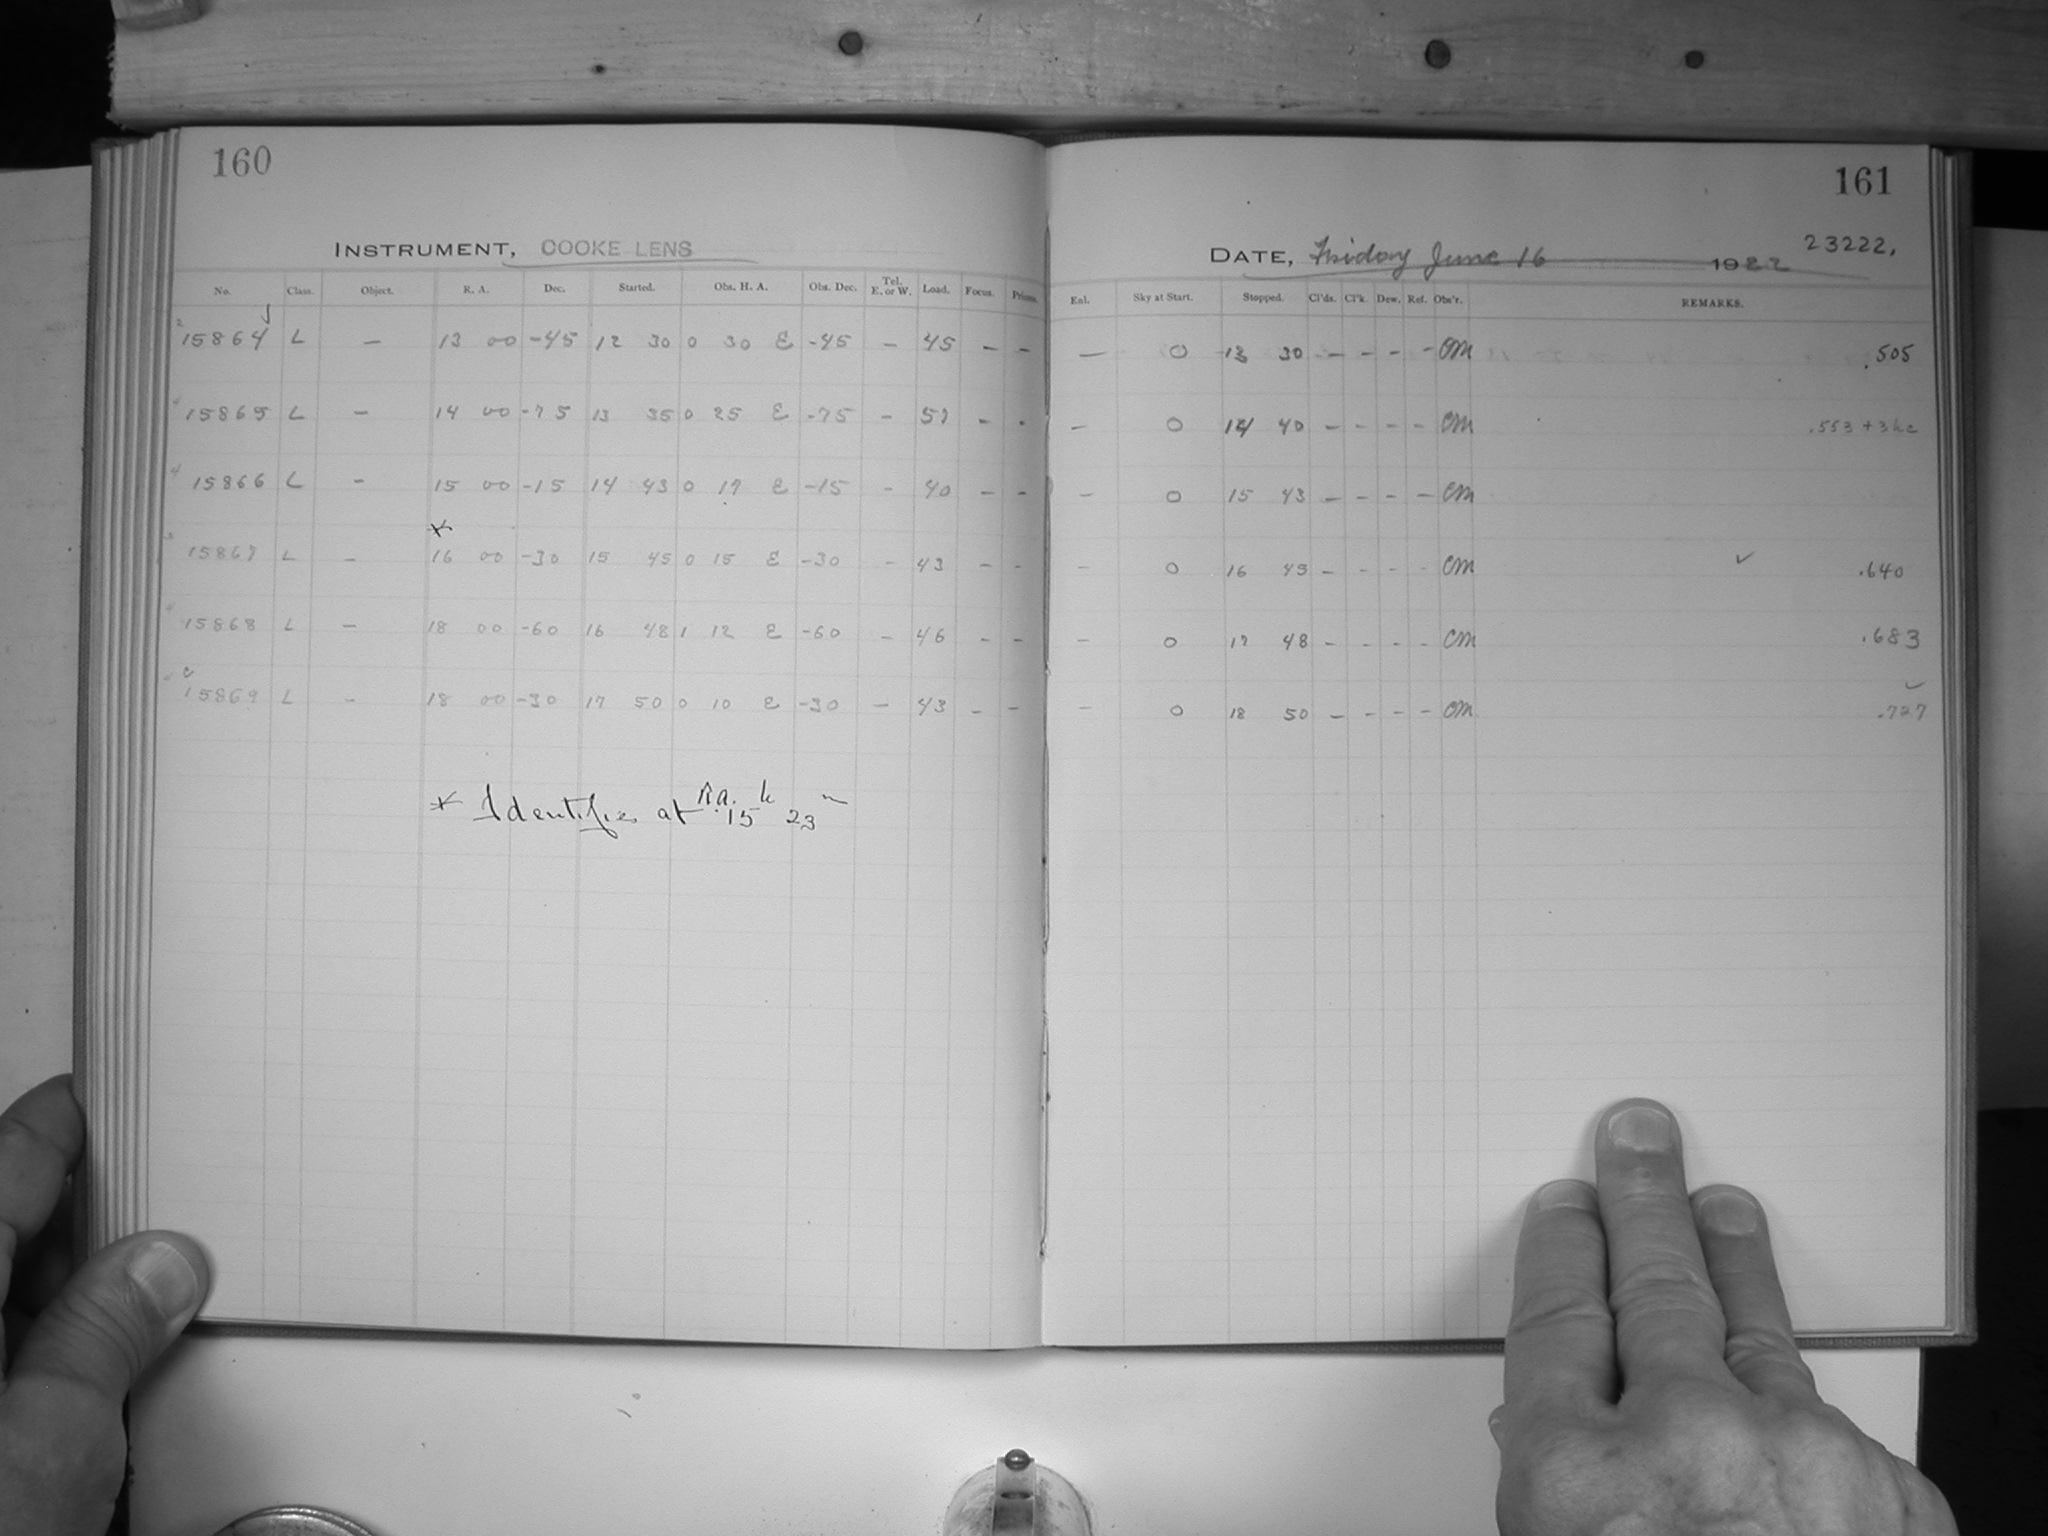 160
INSTRUMENT, COOKE LENS
No. Class. Object. R. A. Dec. Started. Obs. H. A. Obs. Dec. Tel. E. or W. Load. Focus. Prisms.
15864 L — 13 00 -45 12 30 0 30 E -45 — 45 — —
15865 L — 14 00 -75 13 35 0 25 E -75 — 51 — -
15866 L — 15 00 -15 14 43 0 17 E -15 - 40 — —
*
15867 L — 16 00 -30 15 45 0 15 E -30 - 43 - -
15868 L — 18 00 -60 16 48 1 12 E -60 — 46 - —
15869 L - 18 00 -30 17 50 0 10 E -30 — 43 — -
* Identifies at R.a. 15 h 23 m
161
DATE, Friday June 16 1922
23222.
Enl. Sky at Start. Stopped. Cl'ds. Cl'k. Dew. Ref. Obs'r. REMARKS.
— 0 13 30 - - - - OM .505
— 0 14 40 - - - - OM .553 + 3he
— 0 15 43 — - - — OM
- 0 16 45 - - - - OM ✓ .640
- 0 17 48 - - - - OM .683
- 0 18 50 — - - - OM ✓ .727